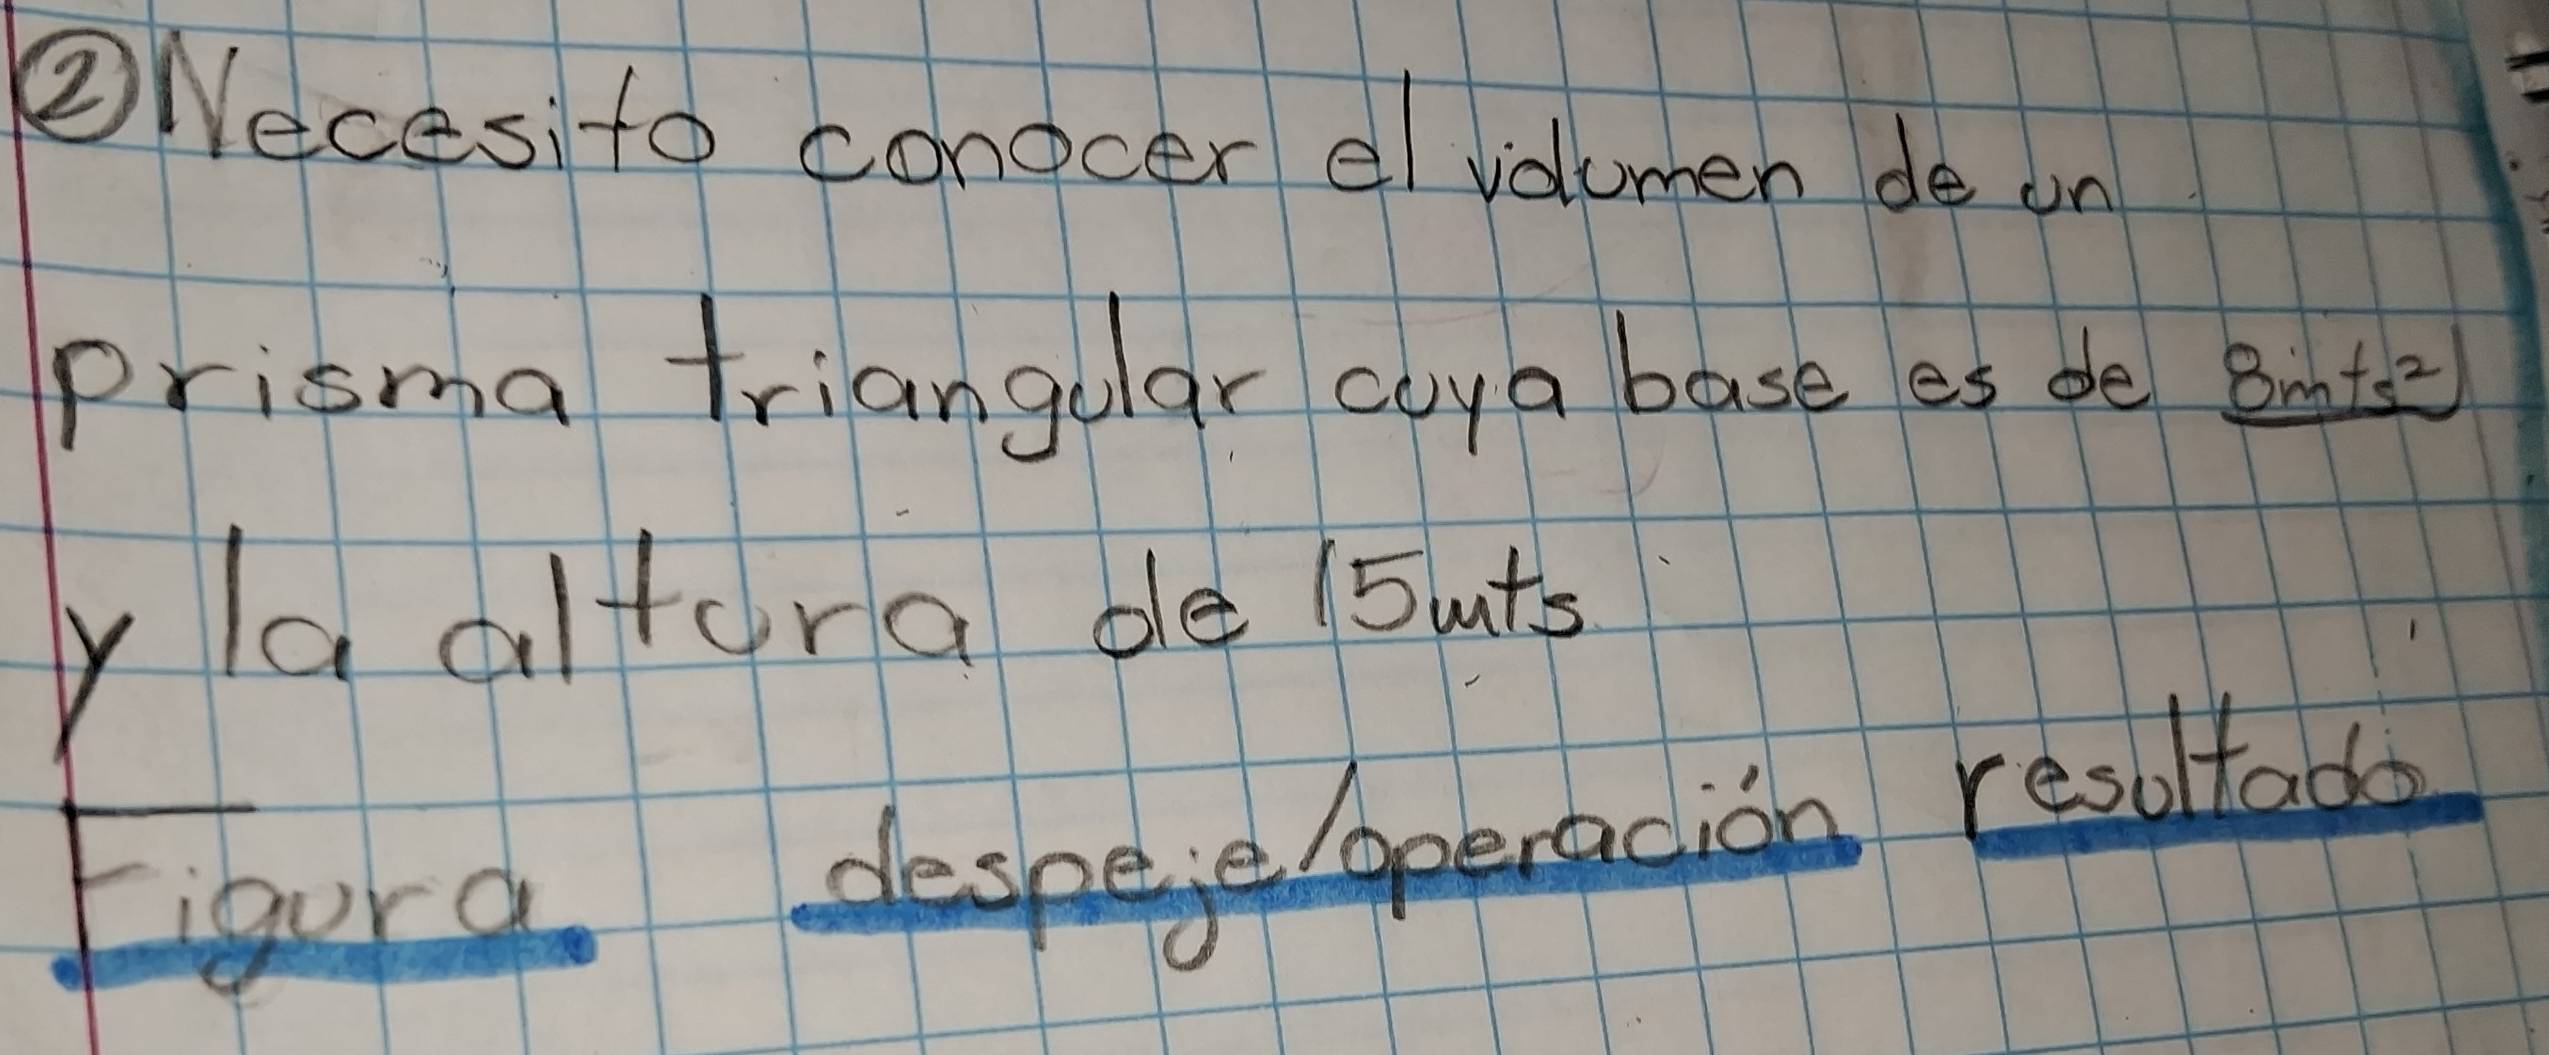 ② Necesito conocer el volumen de un
prisma triangular cuya base es de 8mts²
y la altura de 15mts
Figura despeje/operación resultado